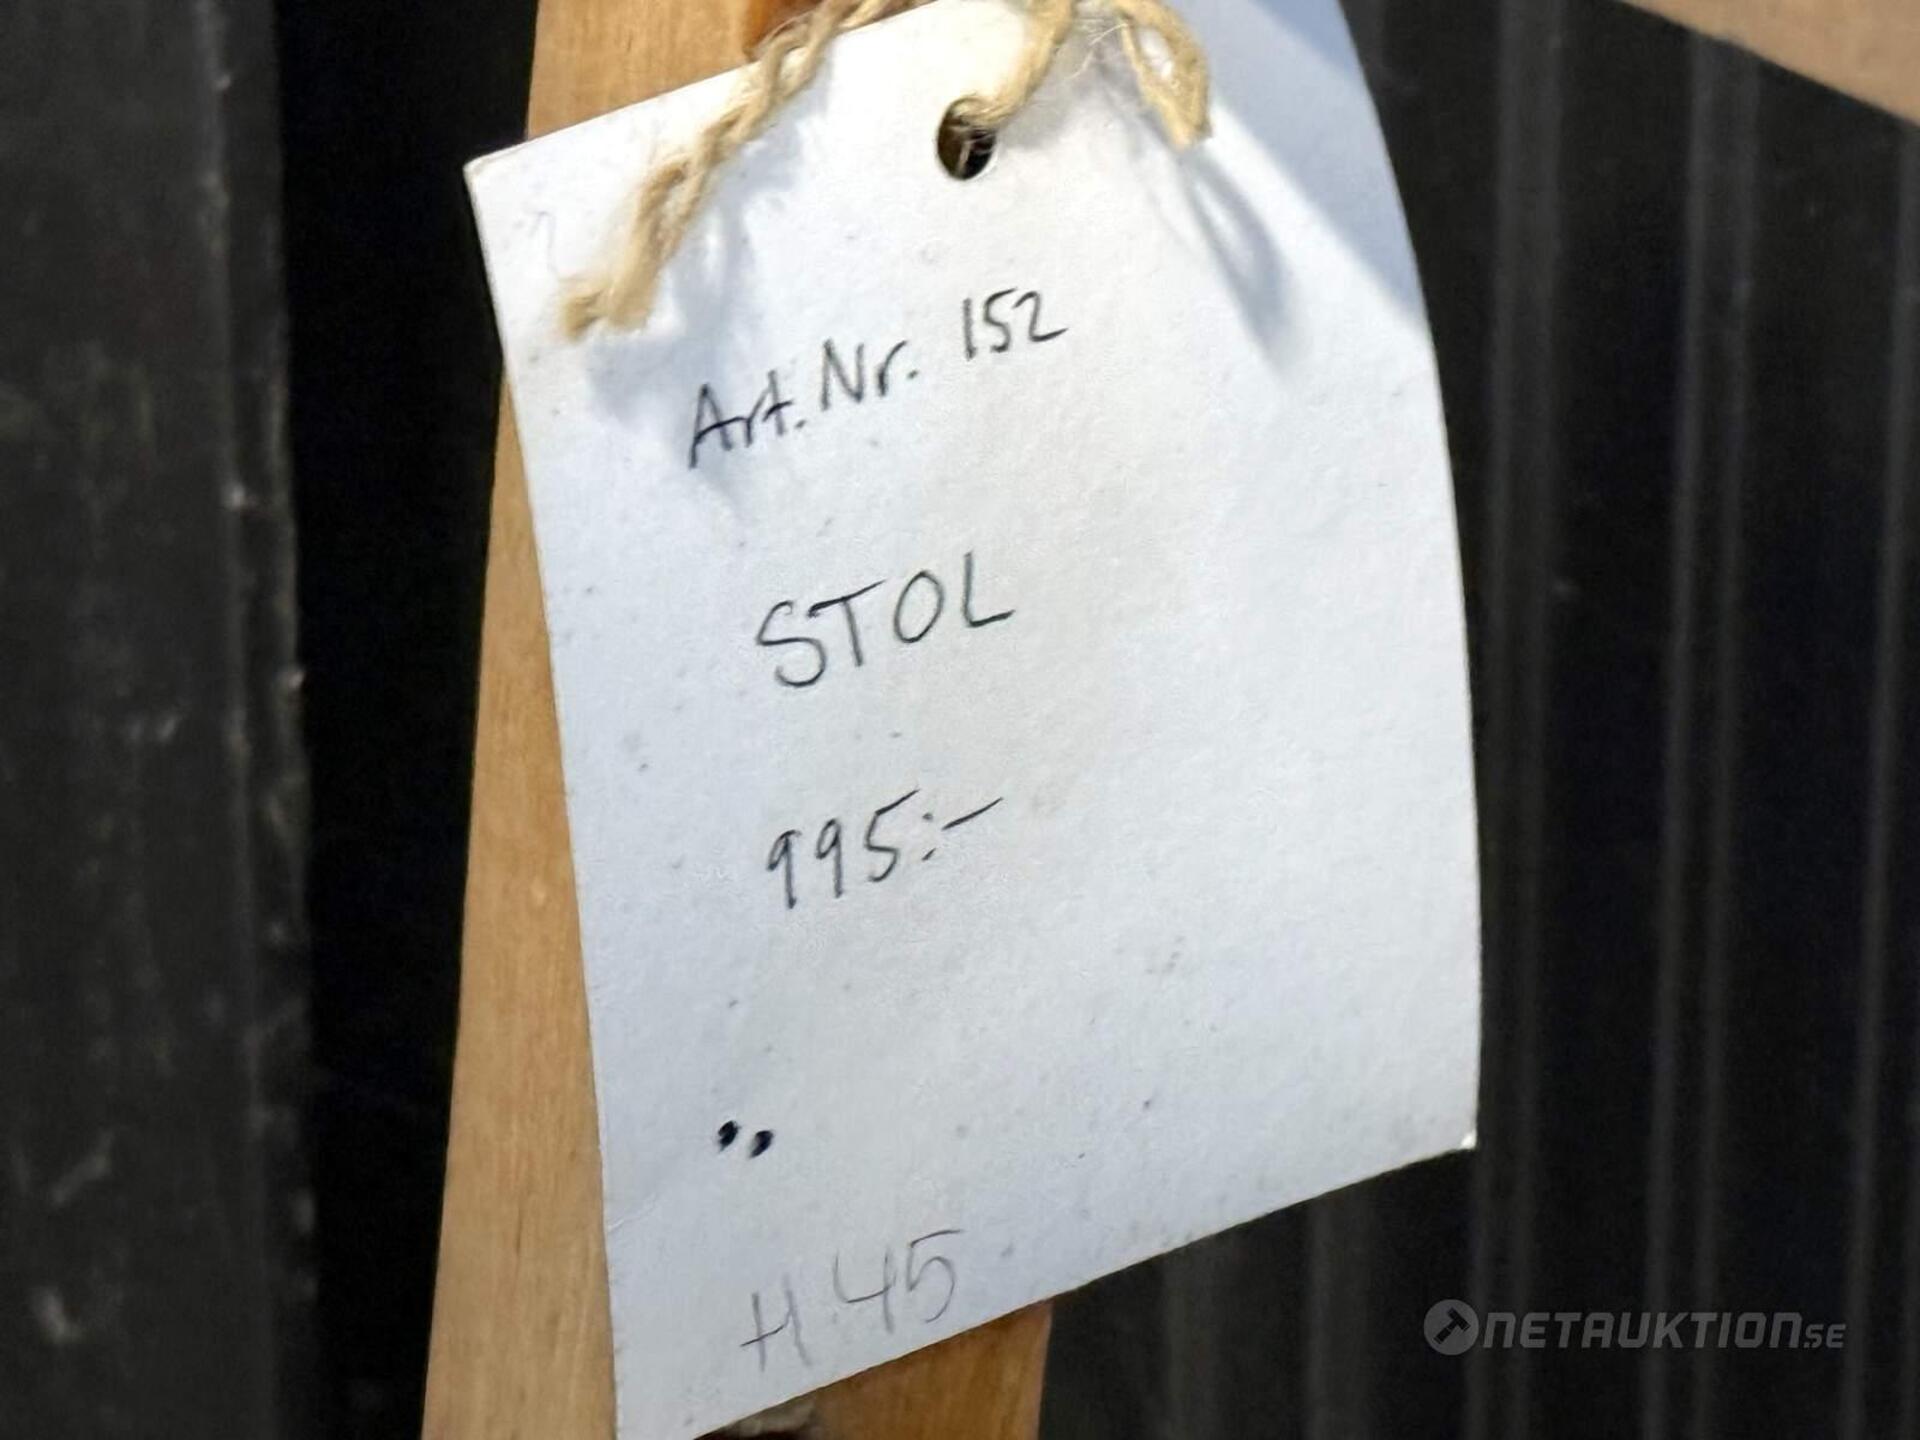 Art.Nr. 152
STOL
995:-
H 45
NETAUKTION.SE